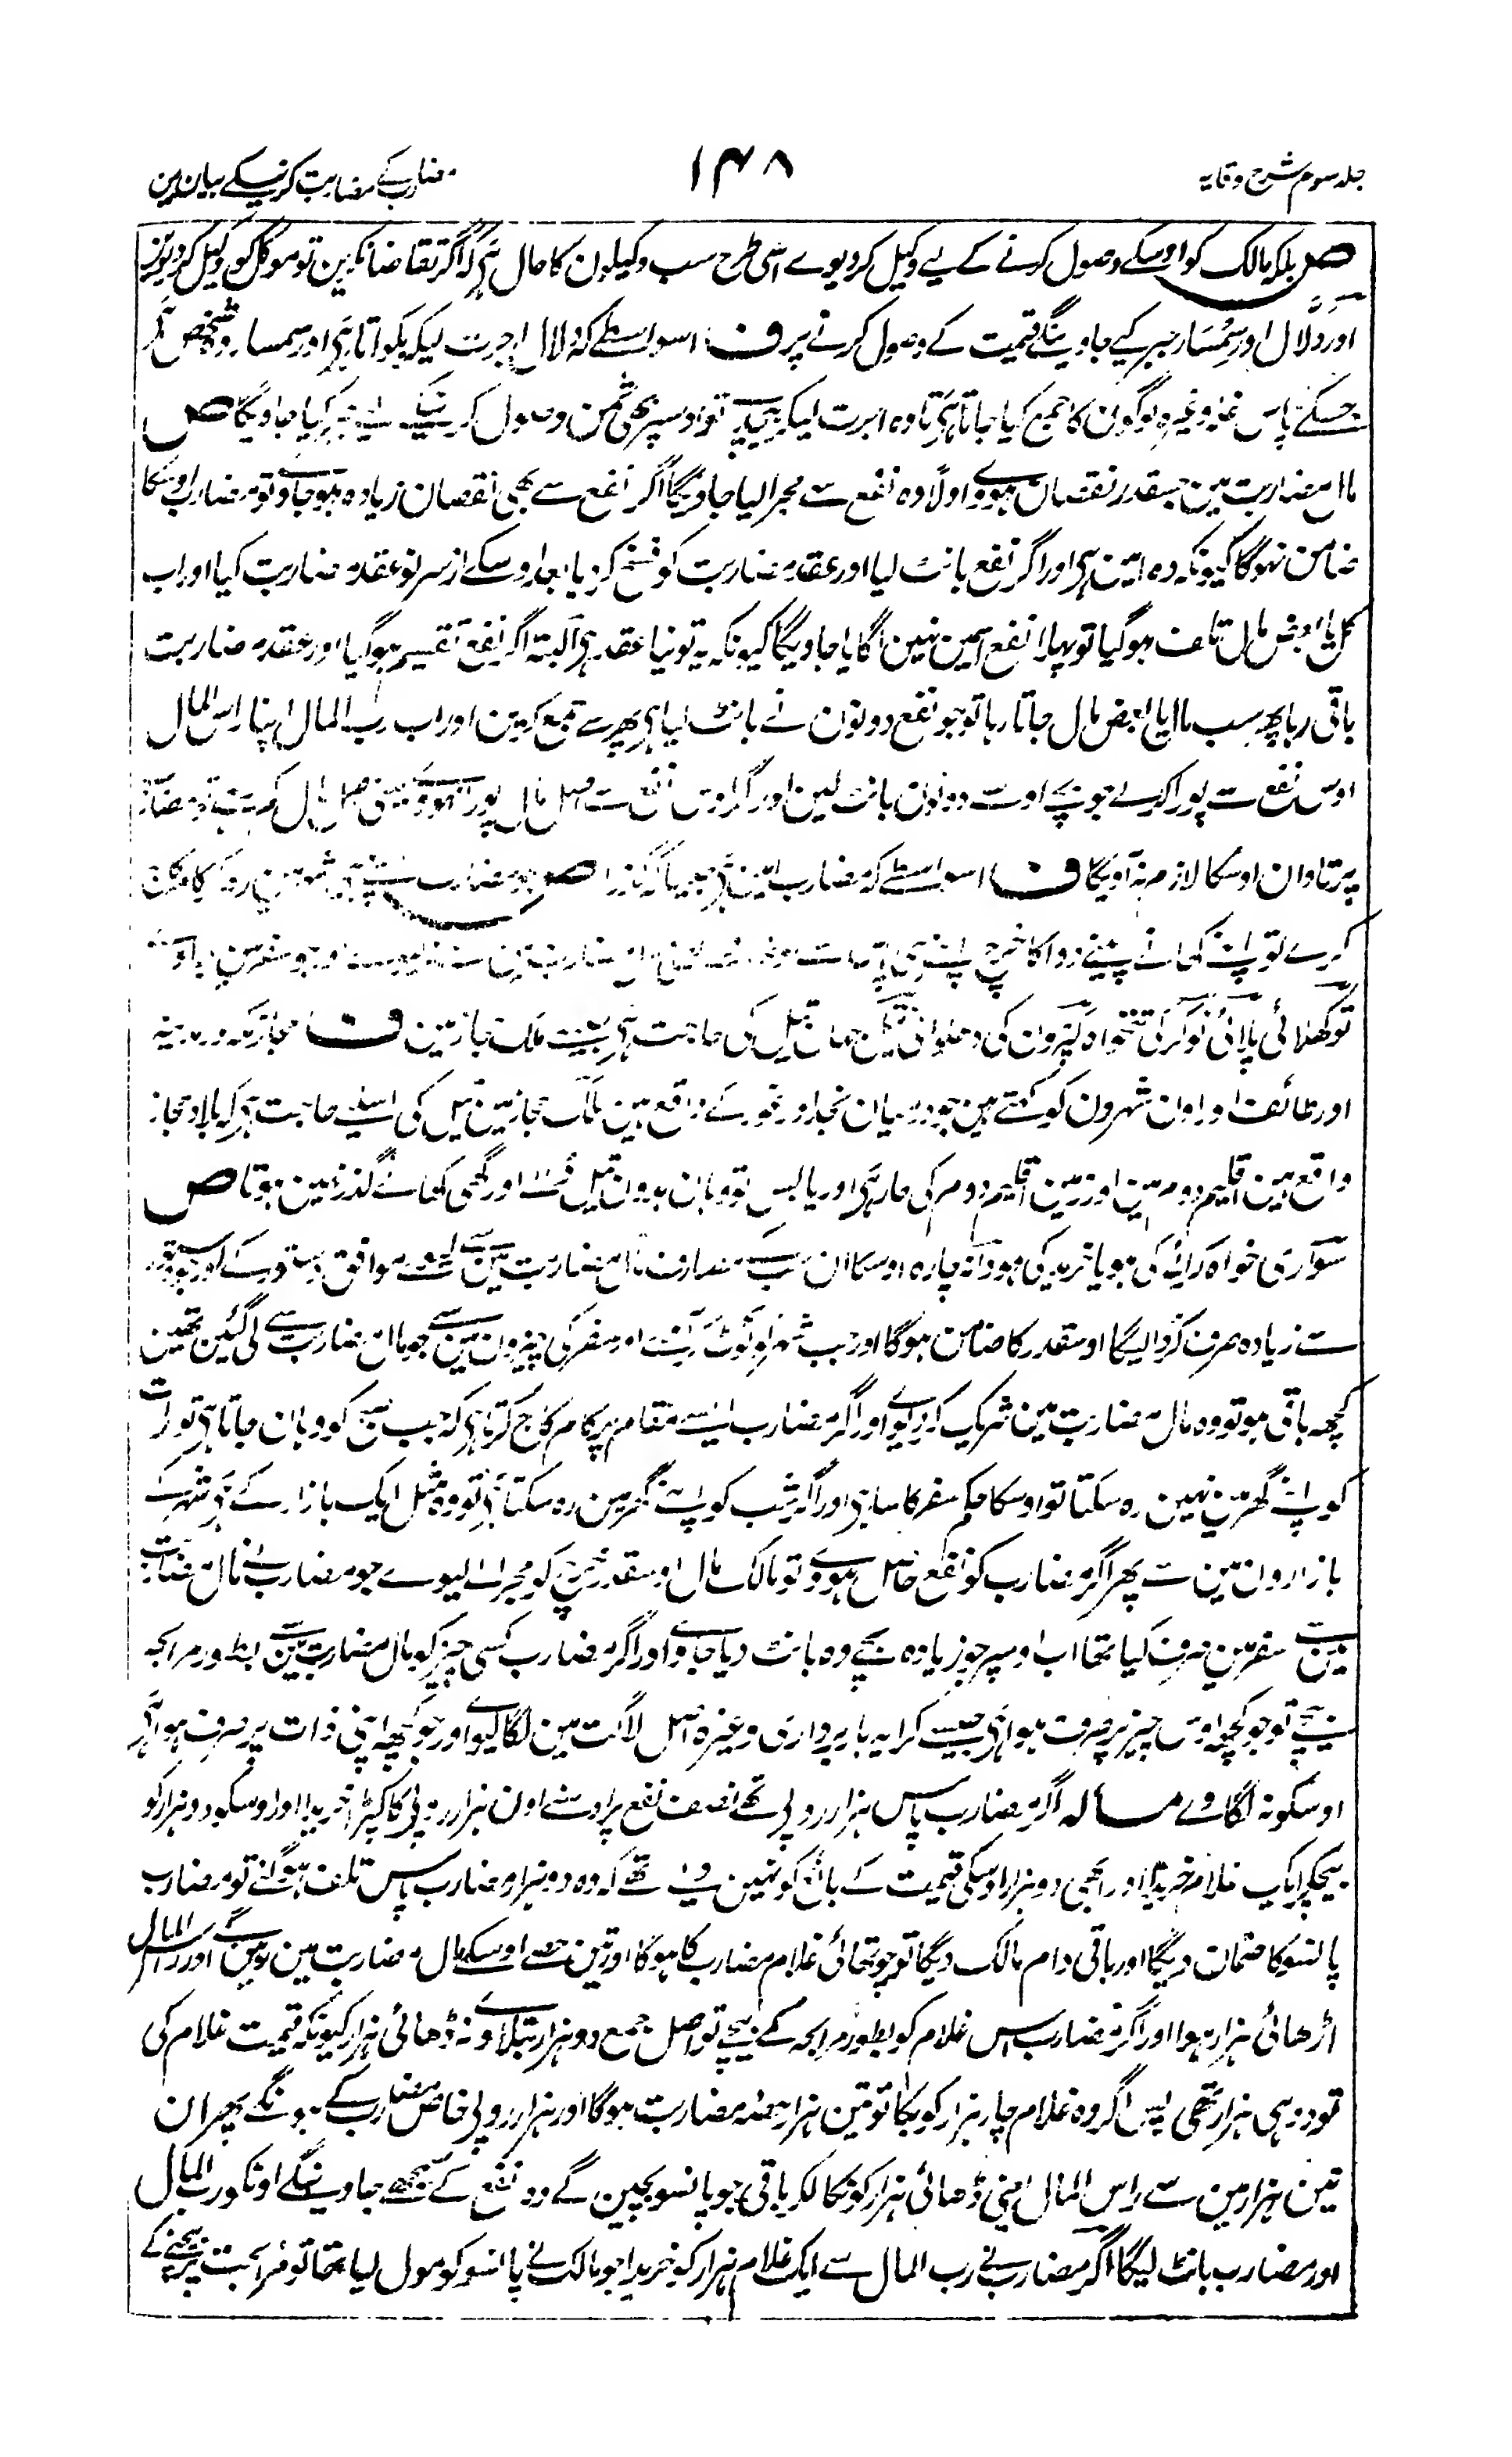 جلد سوم شرح وقایہ
۱۴۸
مضارب کے مضاربت کرنیکے بیان مین
ص بلکہ مالک کو اوسکے وصول کرنے کے لیے وکیل کر دیوے اسی طرح سب وکیلون کا حال ہی کہ اگر تقاضا نکرین تو موکل کو وکیل کر دیوین
اور دلال اور سمسار جبر کیے جاوینگے قیمت کے وصول کرنے پر ف اسواسطے کہ دلال اجرت لیکر بکواتا ہی اور سمسار وہ شخص ہی
جسکے پاس غلہ وغیرہ لوگون کا جمع کیا جاتا ہی تا وہ اجرت لیکر بیچے تو اوسپر بھی ثمن وصول کرنیکے لیے جبر کیا جاویگا ص
مال مضاربت مین جسقدر نقصان ہووے اولا وہ نفع سے مجرا لیا جاویگا اگر نفع سے بھی نقصان زیادہ ہو جاوے تو مضارب اوسکا
ضامن نہوگا کیونکہ وہ امین ہی اور اگر نفع بانٹ لیا اور عقد مضاربت کو فسخ کر دیا بعد اوسکے از سر نو عقد مضاربت کیا اور اب
کل یا بعض مال تلف ہو گیا تو پہلا نفع اسمین نہین لگایا جاویگا کیونکہ یہ تو نیا عقد ہی البتہ اگر نفع تقسیم ہو گیا اور عقد مضاربت
باقی رہا پھر سب مال یا بعض مال جاتا رہا تو جو نفع دونون نے بانٹ لیا ہی پھر سے جمع کرین اور اب رب المال اپنا راس المال
اوس نفع سے پورا کرلے جو بچے اوسے دونون بانٹ لین اور اگر اوس نفع سے اصل مال پورا نہووے
پر تاوان اوسکا لازم نہ آویگا ف اسواسطے کہ مضارب امین ہی جیسا کہ گذرا ص جو مضارب اپنے ہی شہر مین رہکر کام کاج
کرے تو اپنے کھانے پینے دوا کا خرچ اپنے ہی پاس سے
تو کھلائی پلائی نوکر کی تنخواہ کپڑون کی دھلوائی تیل جہان تیل کی حاجت ہی جیسے ملک حجاز مین ف حجاز مکہ اور مدینہ
اور طائف اور اون شہرون کو کہتے ہین جو درمیان نجد اور غور کے واقع ہین ملک حجاز مین تیل کی اسلیے حاجت ہی کہ بلاد حجاز
واقع ہین اقلیم دوم مین اور زمین اقلیم دوم کی حار ہی اور یابس تو وہان بدون تیل ملے اور گھی کھائے گذر نہین ہوتا ص
سواری خواہ کرایہ کی ہو یا خرید کی ہو دانہ چارہ اوسکا ان سب مصارف مال مضاربت مین سے لیوے موافق دستور کے اور جو دستور
سے زیادہ صرف کر ڈالیگا اوسقدر کا ضامن ہوگا اور جب شہر کو لوٹ آئے اور سفر کی چیزون مین سے جو مال مضاربت سے لی گئین تھین
کچھ باقی ہو تو وہ مال مضاربت مین شریک کر دیوے اور اگر مضارب ایسے مقام پر کام کاج کرتا ہی کہ جب صبح کو وہان جاتا ہی تو رات
کو اپنے گھر مین نہین رہ سکتا تو اوسکا حکم سفر کا سا ہی اور اگر شب کو اپنے گھر مین رہ سکتا ہی تو وہ مثل ایک بازار کے ہی شہر کے
بازارون مین سے پھر اگر مضارب کو نفع حاصل ہووے تو مالک مال اوسقدر خرچ کو مجرا لے لیوے جو مضارب نے مال مضاربت
مین سے سفر مین صرف کیا تھا اب اوسپر جو زیادہ بچے وہ بانٹ دیا جاوے اور اگر مضارب کسی چیز کو مال مضاربت مین سے بطور مرابحہ
بیچے تو جو کچھ اوس چیز پر صرف ہوا ہی جیسے کرایہ باربرداری وغیرہ اصل لاگت مین لگا لیوے اور جو کچھ اپنی ذات پر صرف ہوا ہی
اوسکو نہ لگاوے مسالہ اگر مضارب پاس ہزار روپی تھے نصف نفع پر اوسنے اون ہزار روپی کا کپڑا خریدا اور اوسکو دو ہزار کو
بیچکر ایک غلام خریدا اور ابھی دو ہزار اوسکی قیمت کے بائع کو نہین دیے تھے کہ وہ دو ہزار مضارب پاس تلف ہو گئے تو مضارب
پانسو کا ضمان دیگا اور باقی دام مالک دیگا تو چوتھائی غلام مضارب کا ہوگا اور تین حصے اوسکے مال مضاربت مین رہینگے اور راس المال
اڑھائی ہزار ہوا اور اگر مضارب اس غلام کو بطور مرابحہ کے بیچے تو اصل جمع دو ہزار بتلاوے نہ ڈھائی ہزار کیونکہ قیمت غلام کی
تو دو ہی ہزار تھی پس اگر وہ غلام چار ہزار کو بکا تو تین ہزار حصہ مضاربت ہوگا اور ہزار روپی خاص مضارب کے ہونگے پھر ان
تین ہزار مین سے راس المال یعنی ڈھائی ہزار کو نکالکر باقی جو پانسو بچین گے وہ نفع کے سمجھے جاوینگے اونکو رب المال
اور مضارب بانٹ لیگا اگر مضارب نے رب المال سے ایک غلام ہزار کو خریدا جو مالک نے پانسو کو مول لیا تھا تو مرابحت پر بیچنے کے